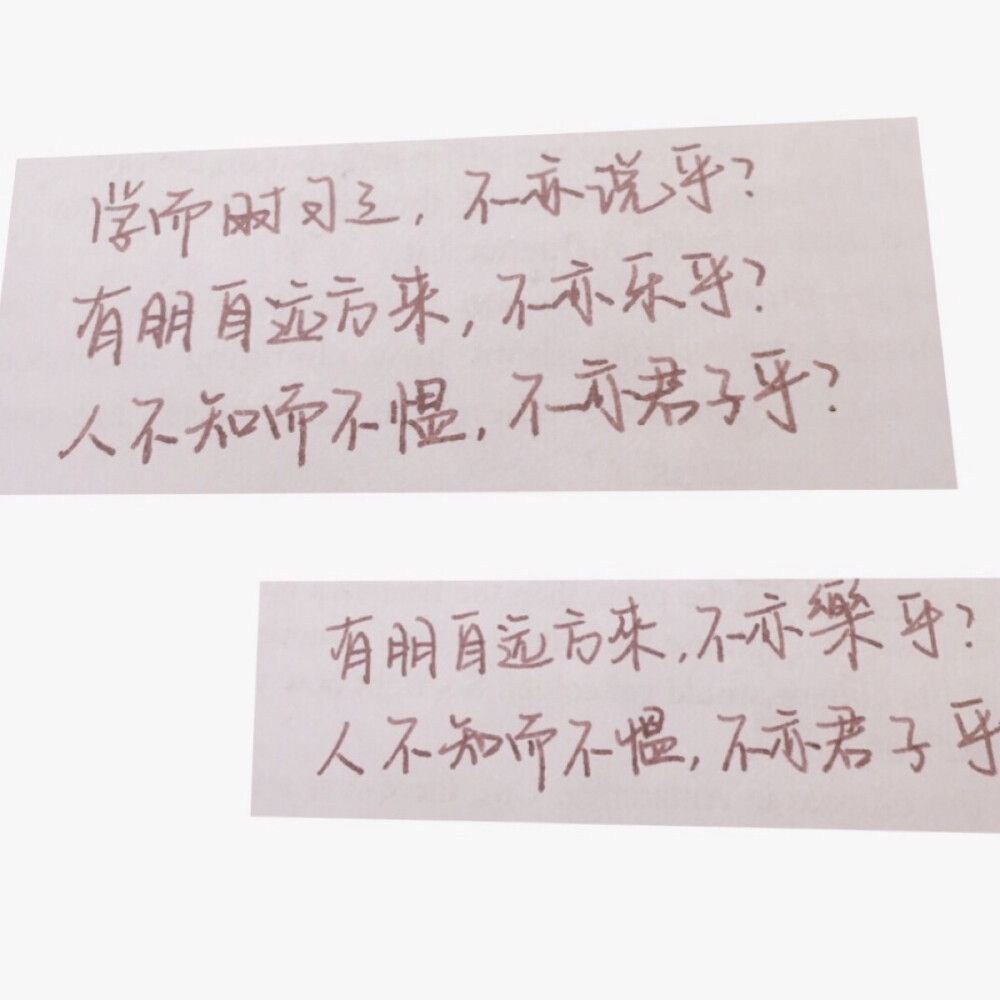 学而时习之，不亦说乎？
有朋自远方来，不亦乐乎？
人不知而不愠，不亦君子乎？
有朋自远方来，不亦樂乎？
人不知而不愠，不亦君子乎